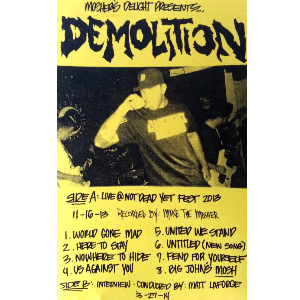 MOSHERS DELIGHT PRESENTS..
DEMOLITION
SIDE A: LIVE @ NOT DEAD YET FEST 2013
11-16-13 RECORDED BY: MIKE THE MOSHER
1. WORLD GONE MAD
2. HERE TO STAY
3. NOWHERE TO HIDE
4. US AGAINST YOU
5. UNITED WE STAND
6. UNTITLED (NEW SONG)
7. FEND FOR YOURSELF
8. BIG JOHN'S MOSH
SIDE B: INTERVIEW - CONDUCTED BY: MATT LAFORGE
3-27-14